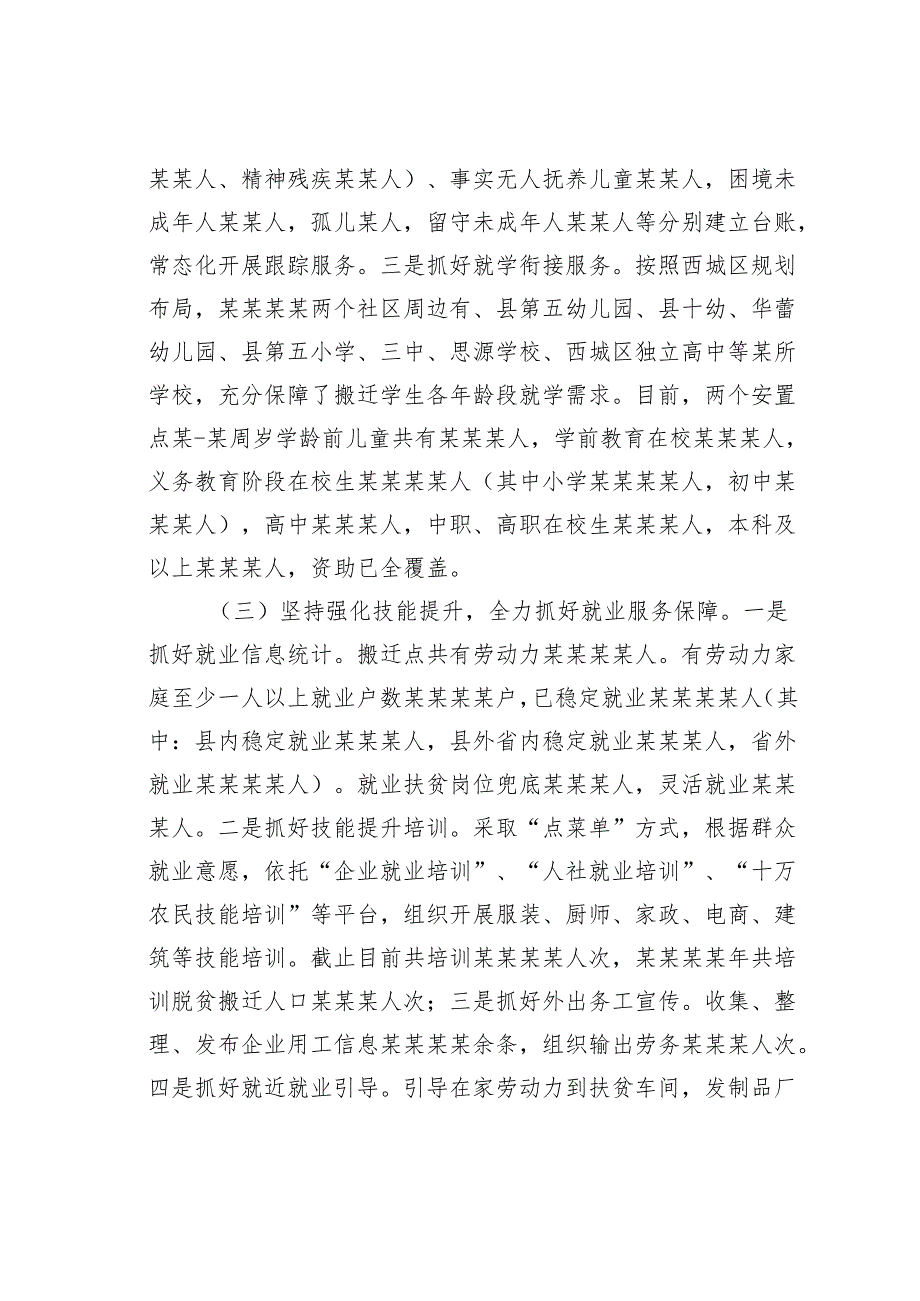 某某人、精神残疾某某人）、事实无人抚养儿童某某人，困境未
成年人某某人，孤儿某人，留守未成年人某某人等分别建立台账，
常态化开展跟踪服务。三是抓好就学衔接服务。按照西城区规划
布局，某某某某两个社区周边有、县第五幼儿园、县十幼、华蕾
幼儿园、县第五小学、三中、思源学校、西城区独立高中等某所
学校，充分保障了搬迁学生各年龄段就学需求。目前，两个安置
点某-某周岁学龄前儿童共有某某某人，学前教育在校某某某人，
义务教育阶段在校生某某某某人（其中小学某某某某人，初中某
某某人），高中某某某人，中职、高职在校生某某某人，本科及
以上某某某人，资助已全覆盖。
（三）坚持强化技能提升，全力抓好就业服务保障。一是
抓好就业信息统计。搬迁点共有劳动力某某某某人。有劳动力家
庭至少一人以上就业户数某某某某户，已稳定就业某某某某人（其
中：县内稳定就业某某某人，县外省内稳定就业某某某人，省外
就业某某某某人）。就业扶贫岗位兜底某某某人，灵活就业某某
某人。二是抓好技能提升培训。采取“点菜单”方式，根据群众
就业意愿，依托“企业就业培训”、“人社就业培训”、“十万
农民技能培训”等平台，组织开展服装、厨师、家政、电商、建
筑等技能培训。截止目前共培训某某某某人次，某某某某年共培
训脱贫搬迁人口某某某人次；三是抓好外出务工宣传。收集、整
理、发布企业用工信息某某某某余条，组织输出劳务某某某人次。
四是抓好就近就业引导。引导在家劳动力到扶贫车间，发制品厂